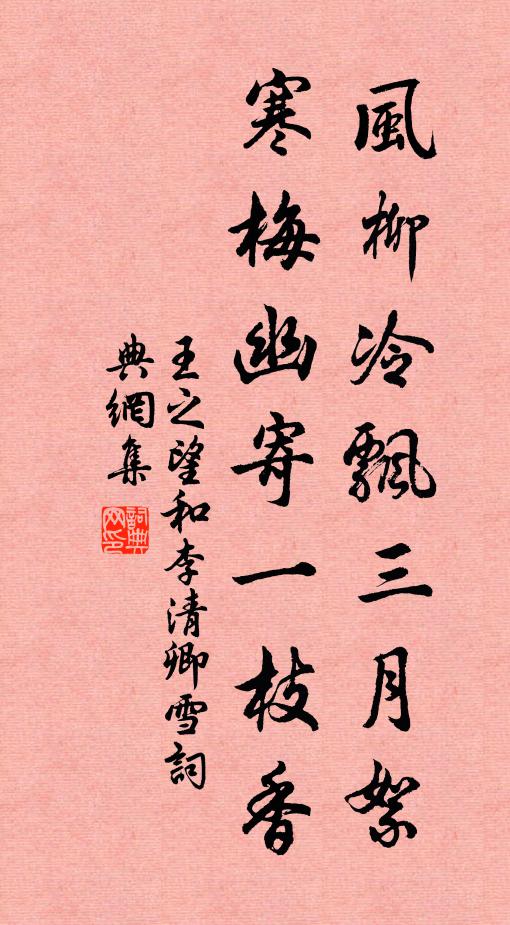 風柳冷飄三月絮
寒梅幽寄一枝香
王之望和李清卿雪詞
典網集
詞典
网印